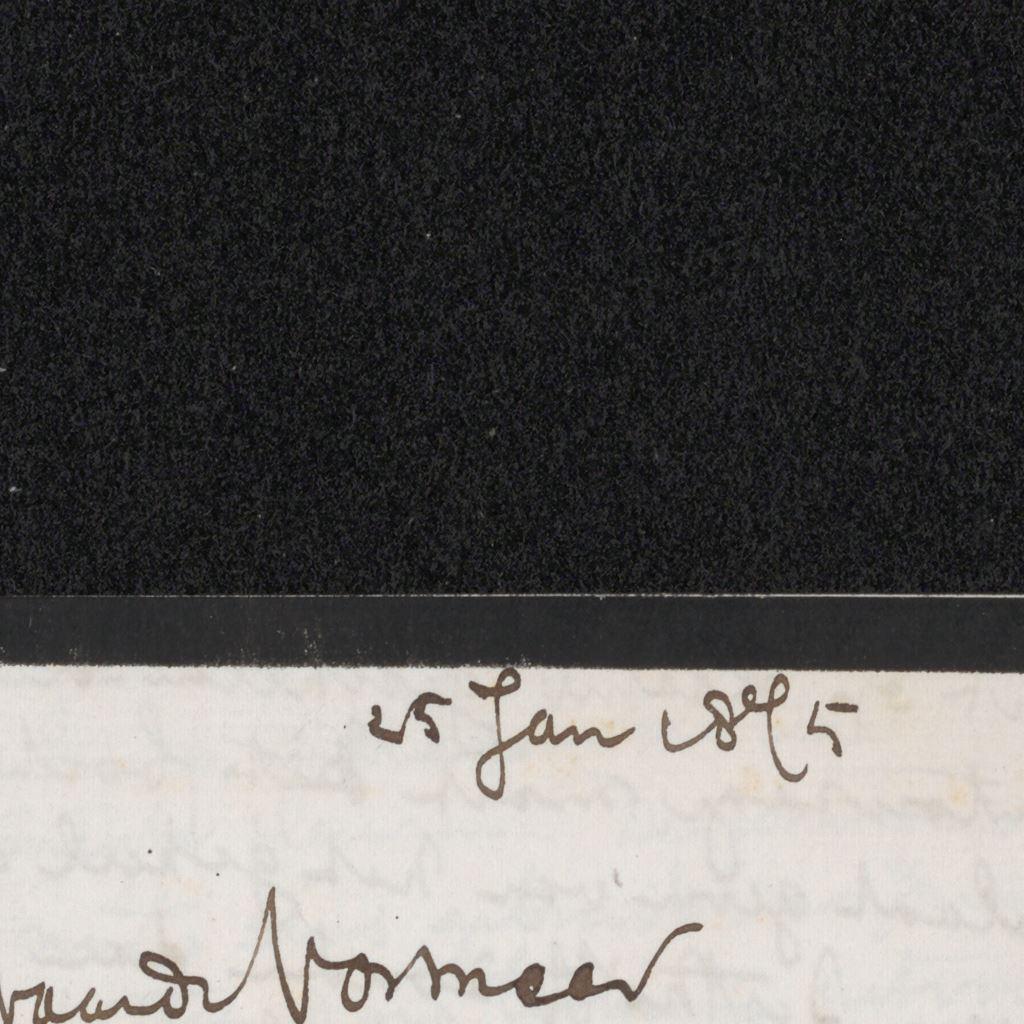 25 Jan 1895
waarde Vosmeer